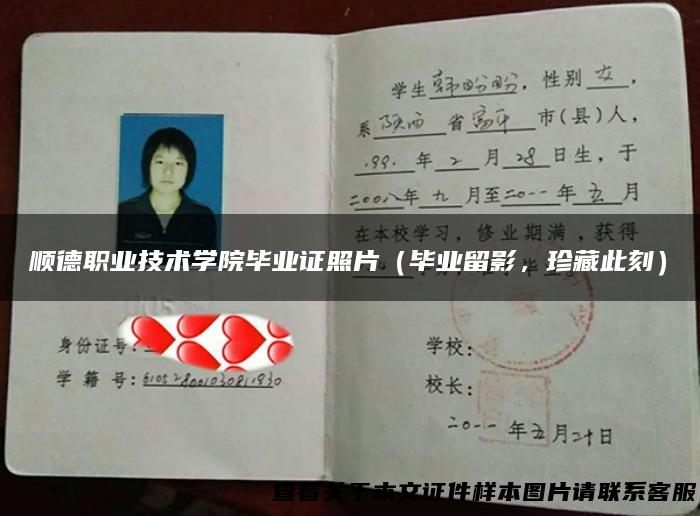 学生韩盼盼，性别女，
系陕西省富平市(县)人，
199.年2月28日生，于
二00八年九月至二0一一年五月
在本校学习，修业期满，获得
顺德职业技术学院毕业证照片（毕业留影，珍藏此刻）
身份证号：
学籍号：
学校：
校长：
二0一一年五月二十日
查看关于本文证件样本图片请联系客服